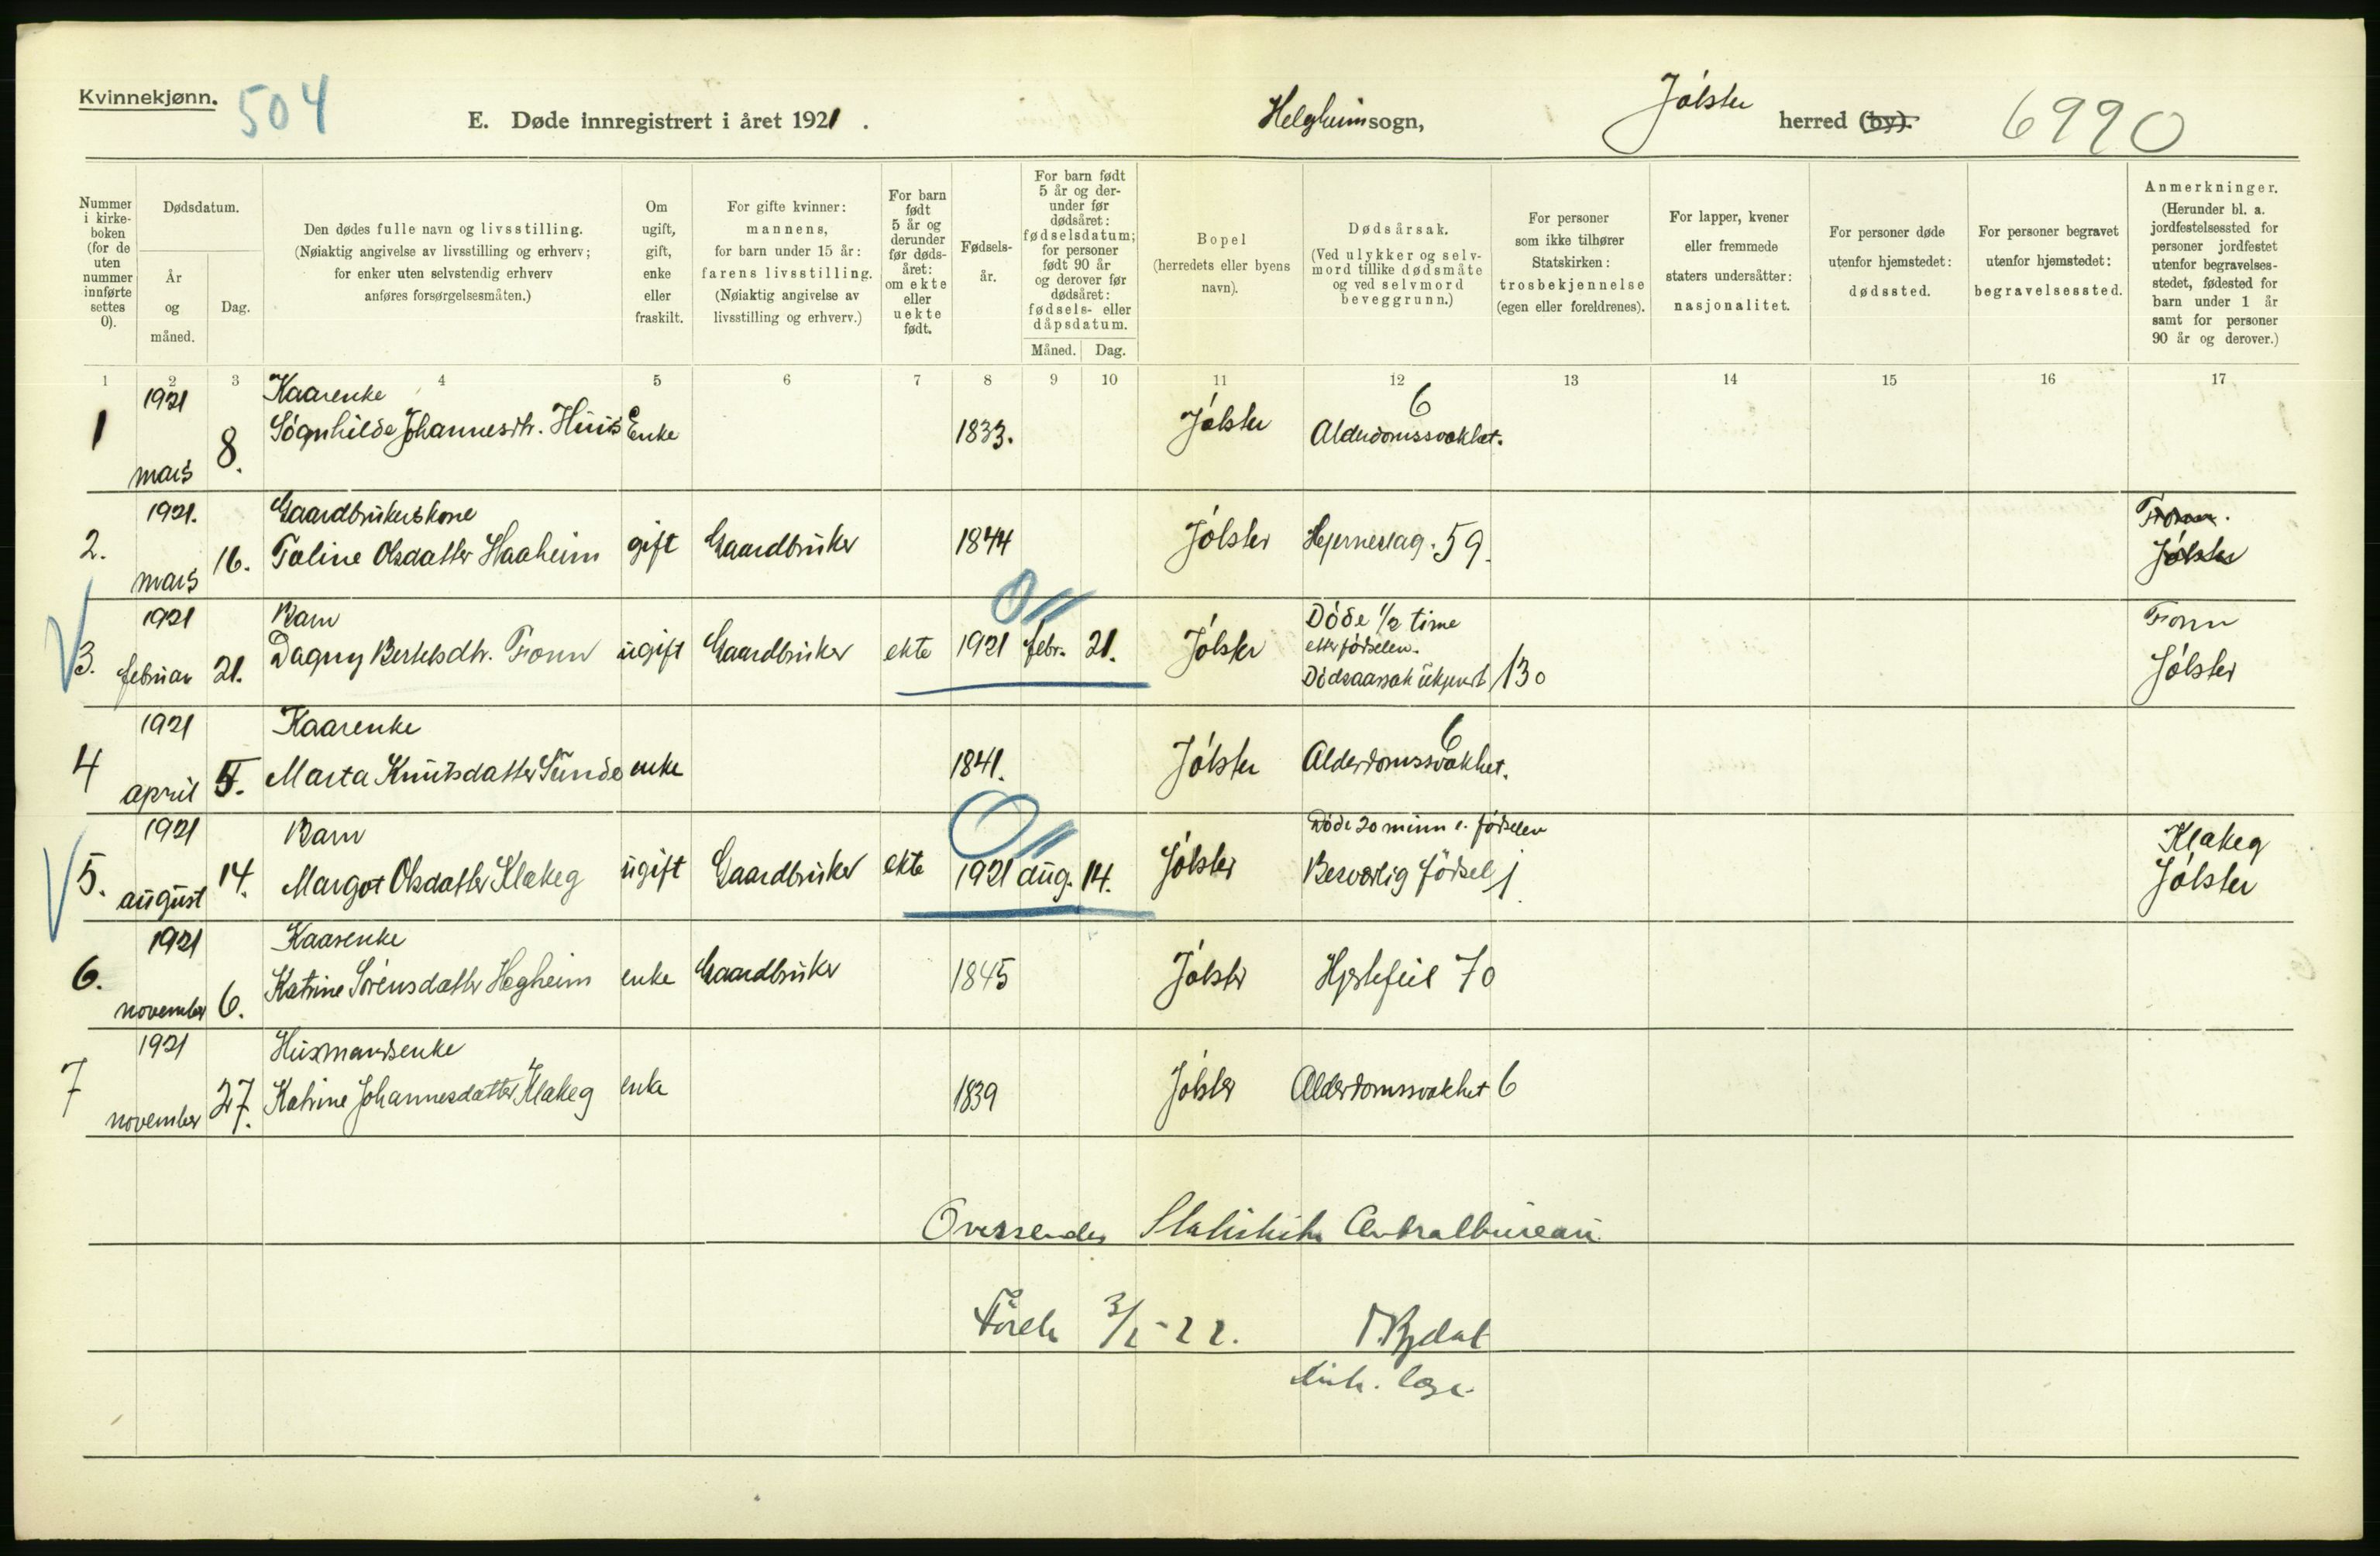 Kvinnekjønn.
504
E. Døde innregistrert i året 1921.
Helgheim sogn,
Jølster herred (by).
6990
Nummer i kirkeboken (for de uten nummer innførte settes 0).
Dødsdatum.
År og måned.
Dag.
Den dødes fulle navn og livsstilling.
(Nøiaktig angivelse av livsstilling og erhverv; for enker uten selvstendig erhverv anføres forsørgelsesmåten.)
Om ugift, gift, enke eller fraskilt.
For gifte kvinner: mannens, for barn under 15 år: farens livsstilling.
(Nøiaktig angivelse av livsstilling og erhverv.)
For barn født 5 år og derunder før dødsåret: om ekte eller uekte født.
Fødselsår.
For barn født 5 år og derunder før dødsåret: fødselsdatum; for personer født 90 år og derover før dødsåret: fødsels- eller dåpsdatum.
Måned.
Dag.
Bopel
(herredets eller byens navn).
Dødsårsak.
(Ved ulykker og selvmord tillike dødsmåte og ved selvmord beveggrunn.)
For personer som ikke tilhører Statskirken: trosbekjennelse (egen eller foreldrenes).
For lapper, kvener eller fremmede staters undersåtter: nasjonalitet.
For personer døde utenfor hjemstedet: dødssted.
For personer begravet utenfor hjemstedet: begravelsessted.
Anmerkninger.
(Herunder bl. a. jordfestelsessted for personer jordfestet utenfor begravelsesstedet, fødested for barn under 1 år samt for personer 90 år og derover.)
1 2 3 4 5 6 7 8 9 10 11 12 13 14 15 16 17
1 1921 mars 8. Kaarenke
Søgnhilde Johannesdtr. Huus Enke 1833. Jølster Alderdomssvakhet. 6
2. 1921. mars 16. Gaardbrukerskone
Taline Olsdatter Haaheim gift Gaardbruker 1844 Jølster Hjerneslag. 59. Fonn. Jølster
3. 1921 februar 21. Barn
Dagny Bertelsdtr. Fonn ugift Gaardbruker ekte 1921 febr. 21. Jølster Døde 1/2 time
efter fødselen.
Dødsaarsak ukjent 130 Fonn Jølster
4 1921 april 5. Kaarenke
Marta Knutsdatter Sunde enke 1841. Jølster Alderdomssvakhet. 6
5. 1921 august 14. Barn
Margot Olsdatter Klakeg ugift Gaardbruker ekte 1921 aug. 14. Jølster Døde 20 minn e. fødselen
Besværlig fødsel Klakeg Jølster
6. 1921 november 6. Kaarenke
Katrine Sørensdatter Hegheim enke Gaardbruker 1845 Jølster Hjertefeil 70
7 1921 november 27. Husmandsenke
Katrine Johannesdatter Klakeg enke 1839 Jølster Alderdomssvakhet 6
Oversendes Statistiske Centralbureau
Førde 3/2-22.
distr. læge